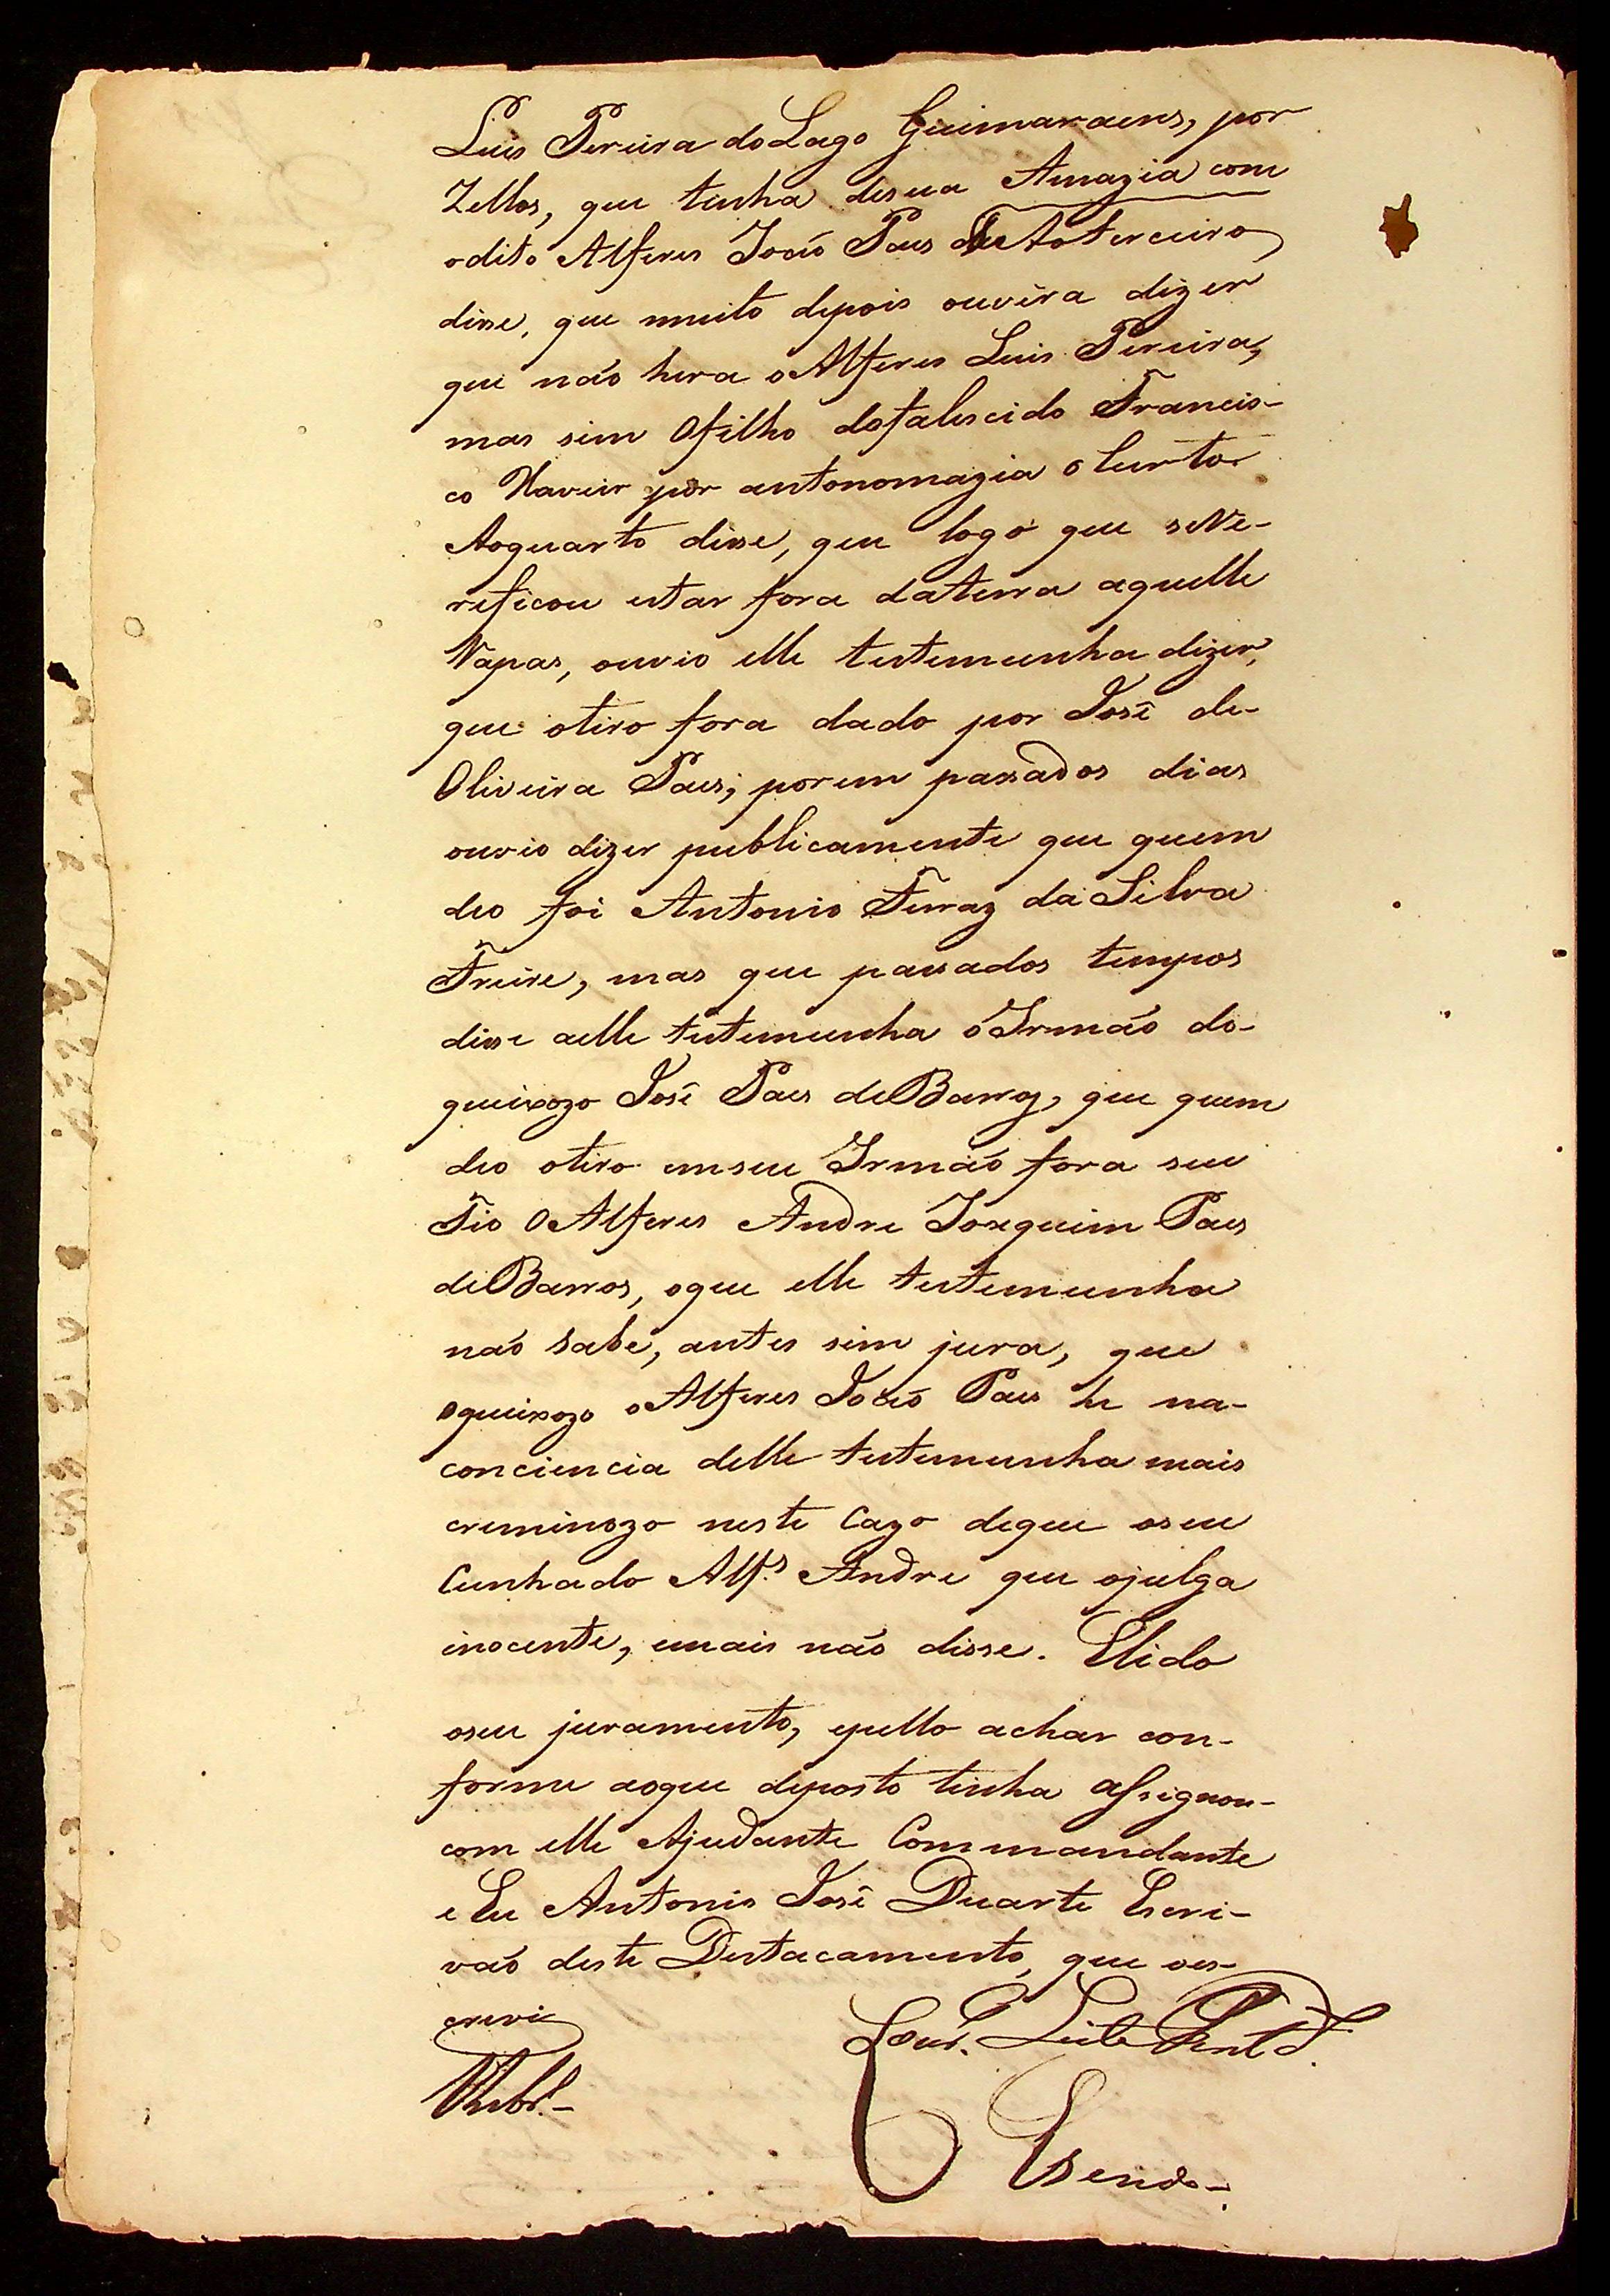 Luis Pereira do Lago Guimaraens, por
Zellos, que tinha desua Amazia com
odito Alferes Joaõ Paes Aoterceiro
disse, que muito depois ouvira dizer
que naõ hera o Alferes Luis Pereira,
mas sim O filho dofalescido Francis-
co Xavier por antonomazia o Curto.
Aoquarto disse, que logo que seVe-
reficou estar fora daterra aquelle
Vapas, ouvio elle testemunha dizer,
que otiro fora dado por José de-
Oliveira Paes; porem passados dias
ouvio dizer publicamente que quem
deo foi Antonio Ferraz da Silva
Freire, mas que passados tempos
disse aelle testemunha o Irmaõ do-
queixozo José Paes deBarros, que quem
deo otiro emseu Irmaõ fora seu
Tio O Alferes Andre Joaquim Paes
deBarros, oque elle testemunha
naõ sabe, antes sim jura, que
oqueixozo o Alferes Joaõ Paes he na-
conciencia delle testemunha mais
creminozo neste Cazo deque oseu
Cunhado Alf.s Andre que ojulga
inocente, emais naõ disse. Elido
oseu juramento, epello achar con-
forme aoque deposto tinha assignou-
com elle Ajudante Commandante
e Eu Antonio José Duarte Escri-
vaõ deste Destacamento, que oes-
crevi
Leite
Esendo-